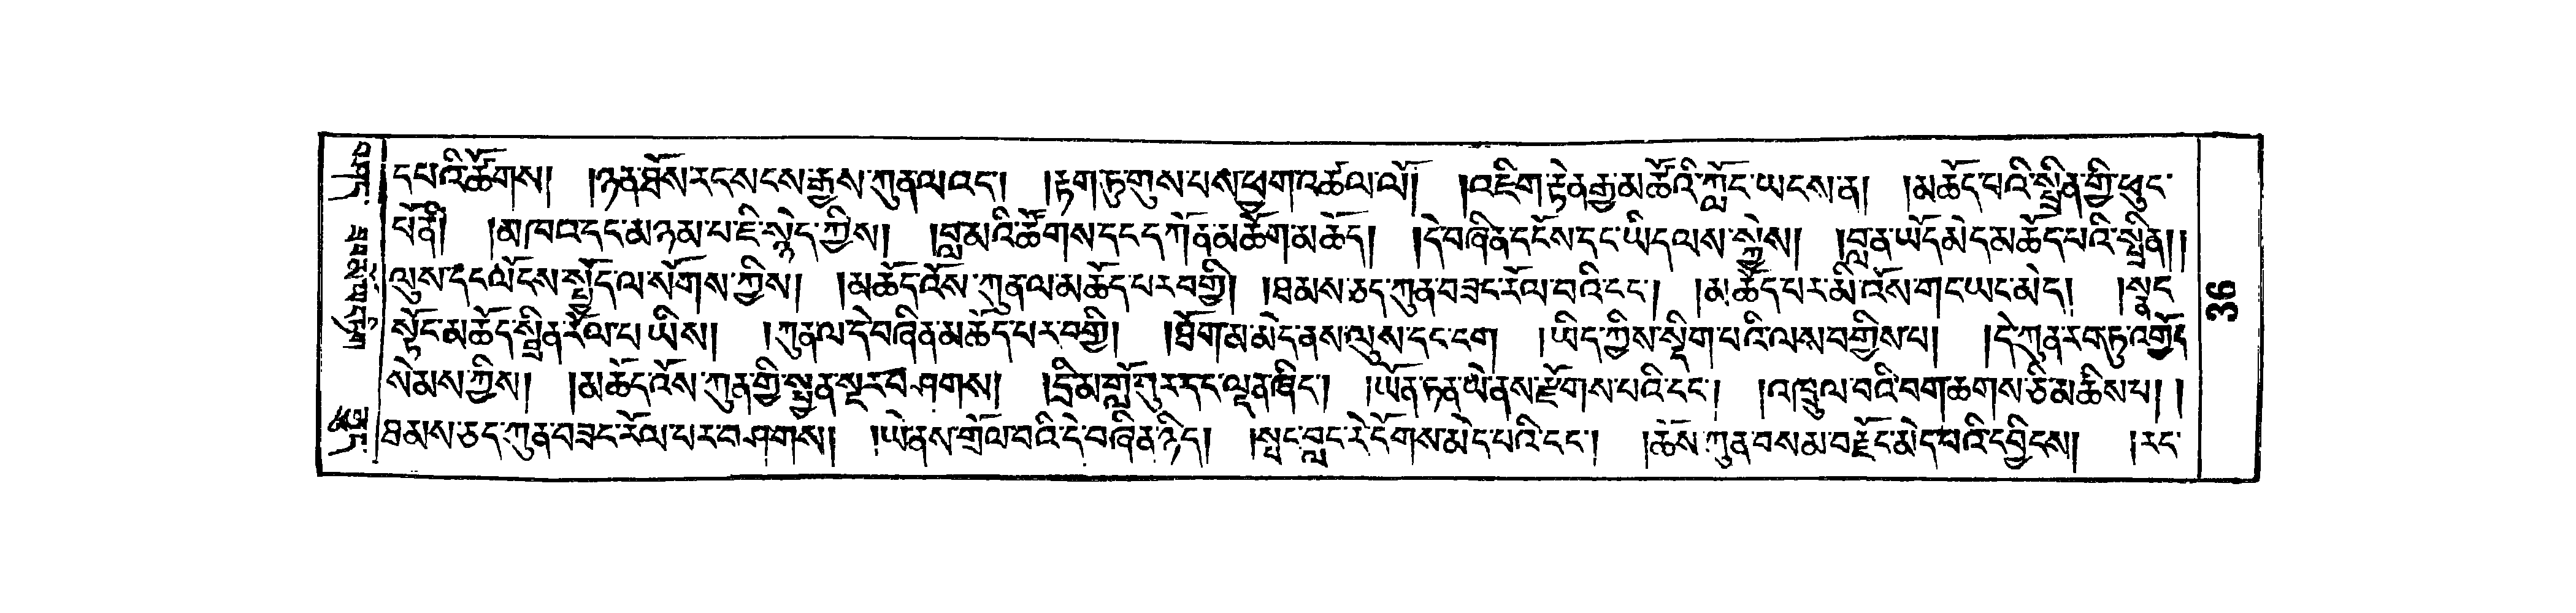 དཔའི་ཚོགས། །ཉན་ཐོས་རང་སངས་རྒྱས་ཀུན་ལ་འང་། །རྟག་ཏུ་གུས་པས་ཕྱག་འཚལ་ལོ། །འཇིག་རྟེན་རྒྱ་མཚོའི་ཀློང་ཡངས་ན། །མཆོད་པའི་སྤྲིན་གྱི་ཕུང་
པོ་ནི། །མཁའ་དང་མཉམ་པ་ཇི་སྙེད་ཀྱིས། །བླ་མའི་ཚོགས་དང་དཀོན་མཆོག་མཆོད། །དེ་བཞིན་དངོས་དང་ཡིད་ལས་སྐྱེས། །བླ་ན་ཡོད་མེད་མཆོད་པའི་སྤྲིན། །
ལུས་དང་ལོངས་སྤྱོད་ལ་སོགས་ཀྱིས། །མཆོད་འོས་ཀུན་ལ་མཆོད་པར་བགྱི། །ཐམས་ཅད་ཀུན་བཟང་རོལ་བའི་ངང་། །མཆོད་པར་མི་འོས་གང་ཡང་མེད། །སྣང་
སྟོང་མཆོད་སྤྲིན་རོལ་པ་ཡིས། །ཀུན་ལ་དེ་བཞིན་མཆོད་པར་བགྱི། །ཐོག་མ་མེད་ནས་ལུས་དང་ངག །ཡིད་ཀྱིས་སྡིག་པའི་ལས་བགྱིས་པ། །དེ་ཀུན་རབ་ཏུ་འགྱོད་
སེམས་ཀྱིས། །མཆོད་འོས་ཀུན་གྱི་སྤྱན་སྔར་བཤགས། །དྲི་མ་གློ་བུར་དང་ལྡན་ཞིང་། །ཡོན་ཏན་ཡེ་ནས་རྫོགས་པའི་ངང་། །འཁྲུལ་བའི་བག་ཆགས་ཅི་མཆིས་པ། །
ཐམས་ཅད་ཀུན་བཟང་རོལ་པར་བཤགས། །ཡེ་ནས་གྲོལ་བའི་དེ་བཞིན་ཉིད། །སྤང་བླང་རེ་དོགས་མེད་པའི་ངང་། །ཆོས་ཀུན་བསམ་བརྗོད་མེད་པའི་དབྱིངས། །རང་